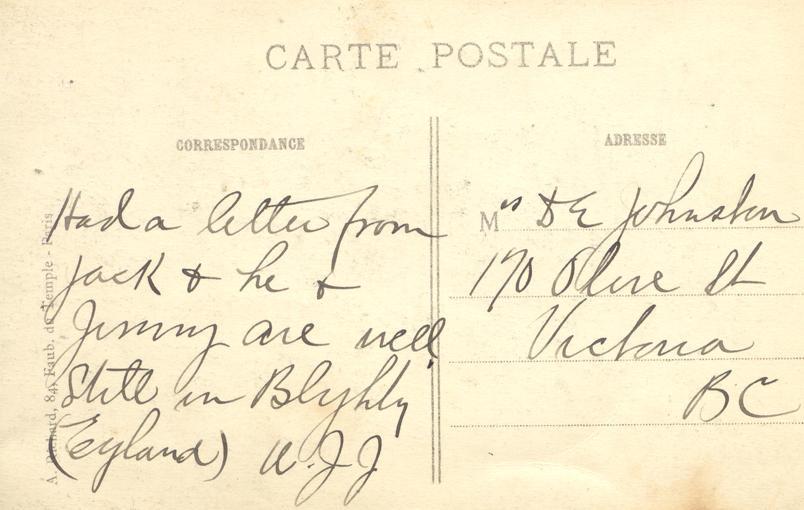 CARTE POSTALE
CORRESPONDANCE
ADRESSE
Had a letter from
Jack & he &
Jimmy are well
Still in Blyhly
(England) W.J.J.
Mrs D E Johnston
170 Olive St
Victoria
BC
84, Faub. du Temple - Paris